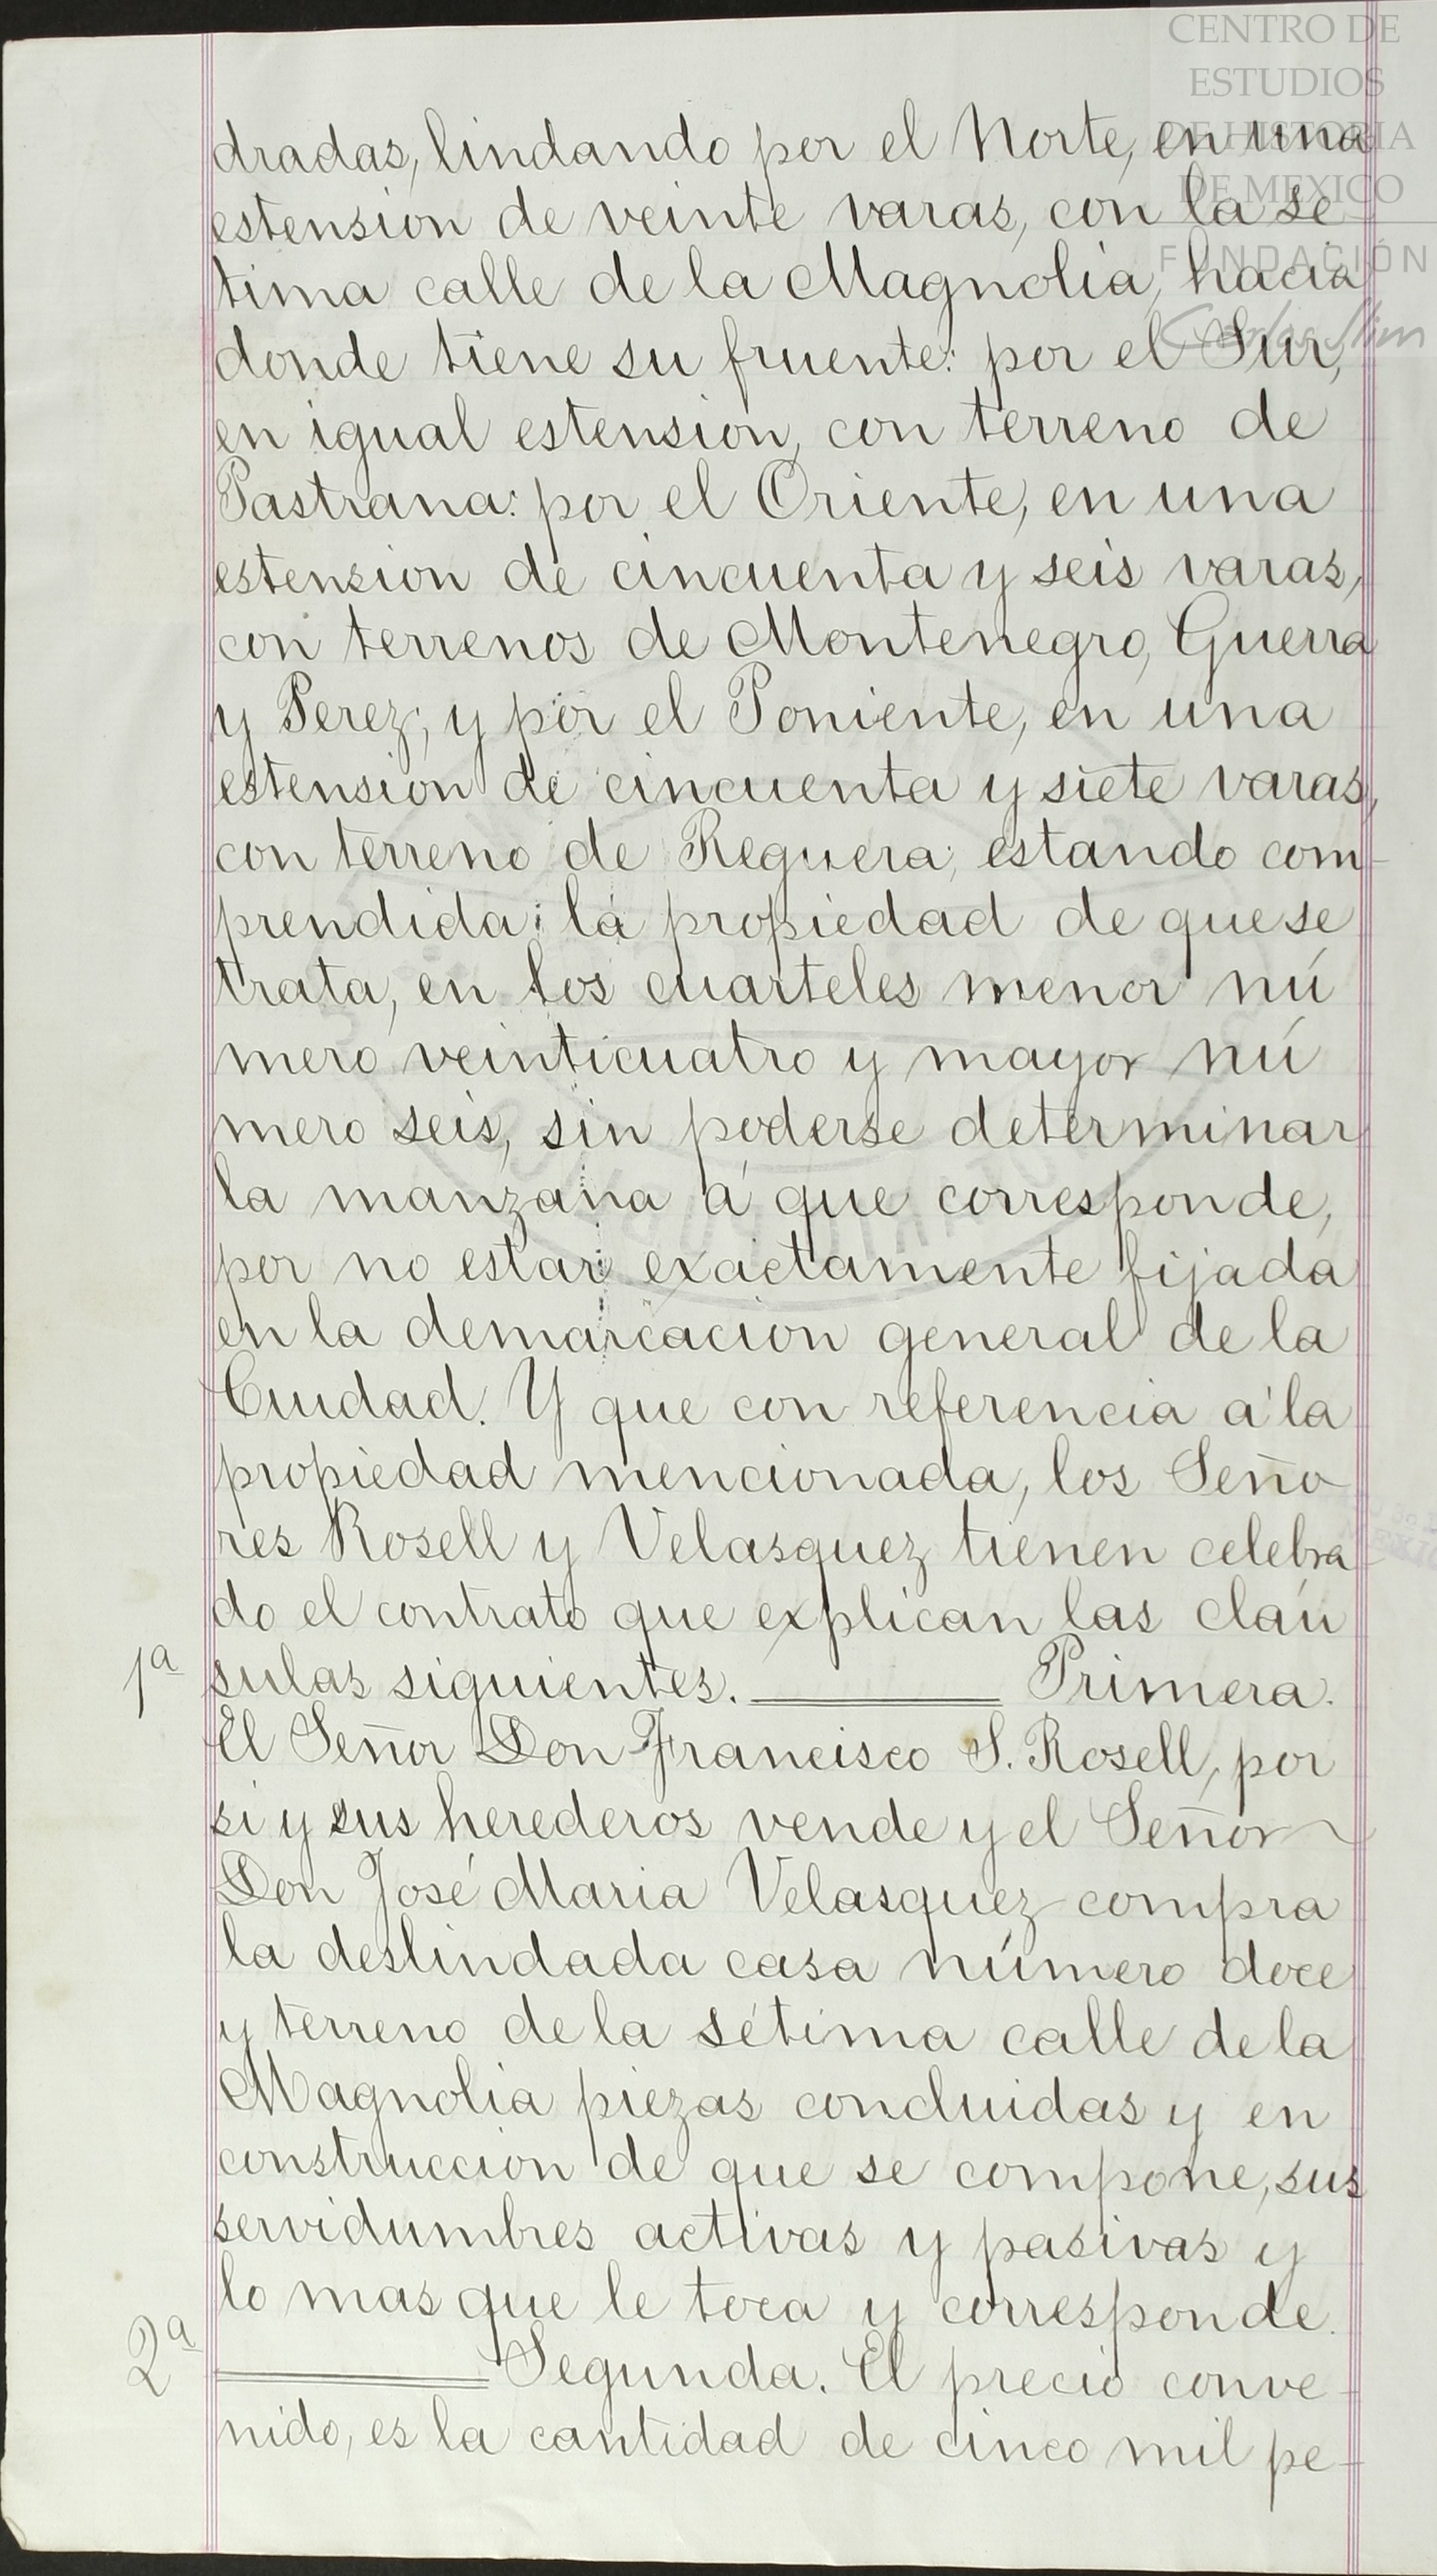 CENTRO DE
ESTUDIOS
DE HISTORIA
DE MEXICO
FUNDACIÓN
Carlos Slim
dradas, lindando por el Norte, en una
estension de veinte varas, con la se
tima calle de la Magnolia, hacia
donde tiene su fruente: por el Sur,
en igual estension, con terreno de
Pastrana: por el Oriente, en una
estension de cincuenta y seis varas,
con terrenos de Montenegro, Guerra
y Perez; y por el Poniente, en una
estension de cincuenta y siete varas,
con terreno de Reguera; estando com-
prendida; la propiedad de que se
trata, en los cuarteles menor nú
mero veinticuatro y mayor nú
mero seis, sin poderse determinar
la manzana á que corresponde,
por no estar exactamente fijada
en la demarcacion general de la
Ciudad. Y que con referencia á la
propiedad mencionada, los Seño-
res Rosell y Velasquez tienen celebra-
do el contrato que explican las claú
1ª sulas siguientes. Primera.
El Señor Don Francisco S. Rosell, por
si y sus herederos vende y el Señor
Don José Maria Velasquez compra
la deslindada casa número doce
y terreno de la sétima calle de la
Magnolia piezas concluidas y en
construccion de que se compone, sus
servidumbres activas y pasivas y
lo mas que le toca y corresponde.
2ª Segunda. El precio conve-
nido, es la cantidad de cinco mil pe-